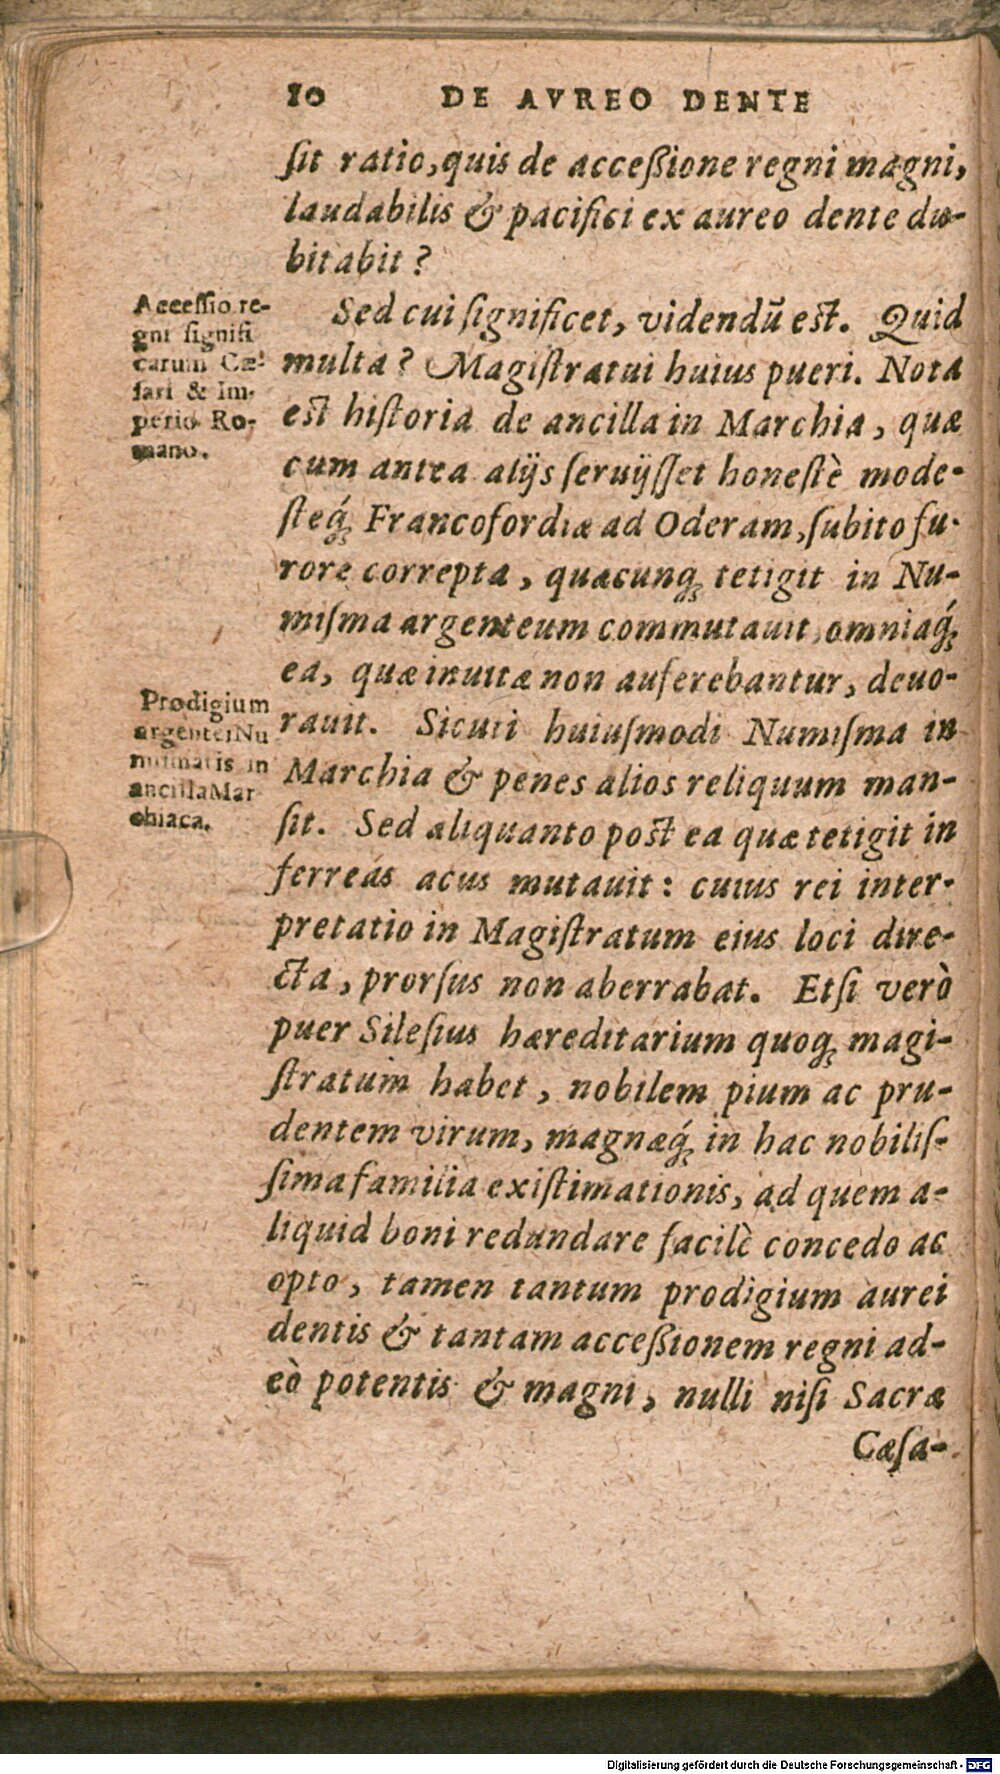 10 DE AVREO DENTE
ſit ratio, quis de acceßione regni magni,
laudabilis & pacifici ex aureo dente du-
bitabit?
Sed cui ſignificet, videndũ est. Quid
multa? Magiſtratui huius pueri. Nota
est hiſtoria de ancilla in Marchia, quæ
cum antea alijs ſeruijſſet honeſtè mode-
ſteq́ꝫ Francofordiæ ad Oderam, ſubito fu-
rore correpta, quæcunqꝫ tetigit in Nu-
miſma argenteum commutauit, omniaq́ꝫ
ea, quæ inuitæ non auferebantur, deuo-
rauit. Sicuti huiuſmodi Numiſma in
Marchia & penes alios reliquum man-
ſit. Sed aliquanto post ea quæ tetigit in
ferreas acus mutauit: cuius rei inter-
pretatio in Magiſtratum eius loci dire-
cta, prorſus non aberrabat. Etſi verò
puer Sileſius hæreditarium quoqꝫ magi-
ſtratum habet, nobilem pium ac pru-
dentem virum, magnæq́ꝫ in hac nobiliſ-
ſima familia exiſtimationis, ad quem a-
liquid boni redundare facilè concedo ac
opto, tamen tantum prodigium aurei
dentis & tantam acceßionem regni ad-
eò potentis & magni, nulli niſi Sacræ
Cæſa-
Acceſſio re-
gni ſignifi
catum Cæ-
ſari & Im-
perio Ro-
mano.
Prodigium
argentei Nu
miſmatis in
ancilla Mar
chiaca.
Digitalisierung gefördert durch die Deutsche Forschungsgemeinschaft - DFG